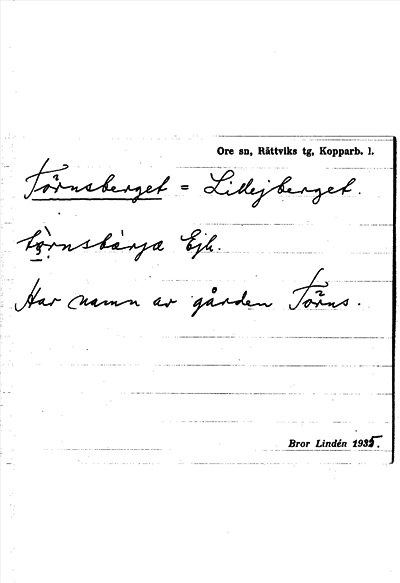 Ore sn, Rättviks tg, Kopparb. l.
Törnsberget = Lillejberget.
Ejh.
Har namn av gården Törns.
Bror Lindén 1935.